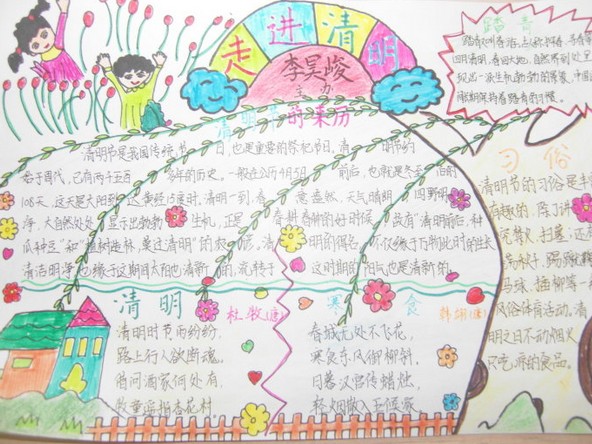 走进清明
李昊峻
主办
清明节的来历
清明节是我国传统节日,也是重要的祭祀节日,清明节约
始于周代,已有两千五百多年的历史,一般在公历4月5日前后,也就是冬至后的
108天,这天是太阳到达黄经15度时,清明一到,春意盎然,天气晴朗,四野明
净,大自然处处显示出勃勃生机,正是春耕春种的好时候,故有"清明前后,种
瓜种豆"和"植树造林,莫过清明"的农谚,清明的得名,不仅缘于万物此时的生长
清洁明净,也缘于这期间太阳也清新的,流转于这时期的阳气也是清新的
清明
杜牧(唐)
清明时节雨纷纷,
路上行人欲断魂,
借问酒家何处有,
牧童遥指杏花村
寒食
韩翃(唐)
春城无处不飞花,
寒食东风御柳斜,
日暮汉宫传蜡烛,
轻烟散入五侯家
踏青
踏青又叫春游,古
四月清明,春回大地,自然界到处呈
现出一派生机勃勃的景象,
习俗
清明节的习俗是丰
有趣的,除了讲
究禁火、扫墓,还有
荡秋千、踢蹴鞠
马球、插柳等一
风俗体育活动,
明之日不动烟火
只吃 的食品。